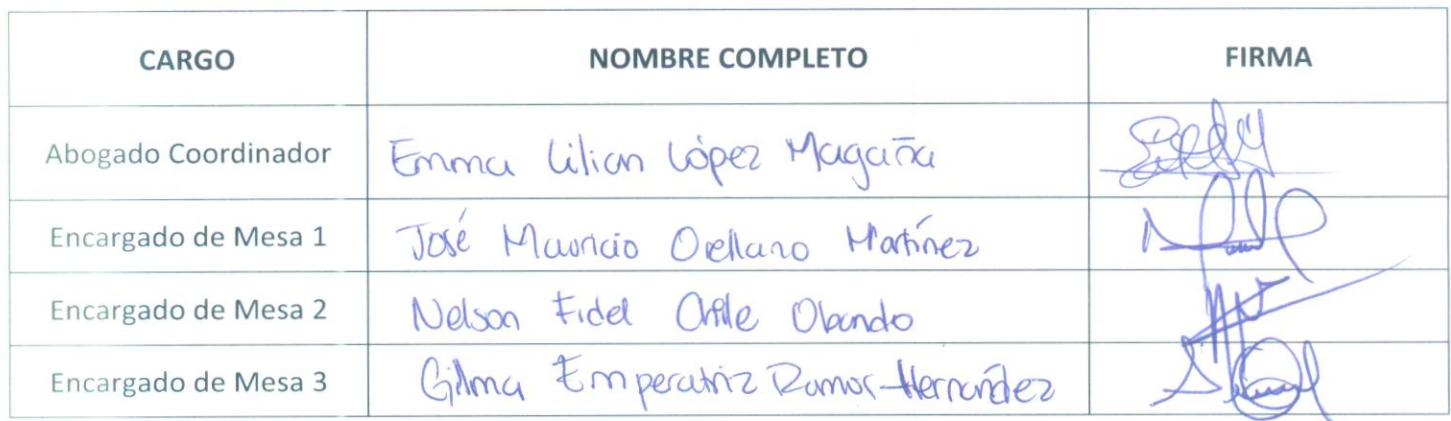 CARGO NOMBRE COMPLETO FIRMA
Abogado Coordinador Emma Lilian López Magaña
Encargado de Mesa 1 José Mauricio Orellano Martínez
Encargado de Mesa 2 Nelson Fidel Obando
Encargado de Mesa 3 Gilma Emperatriz Ramos Hernández